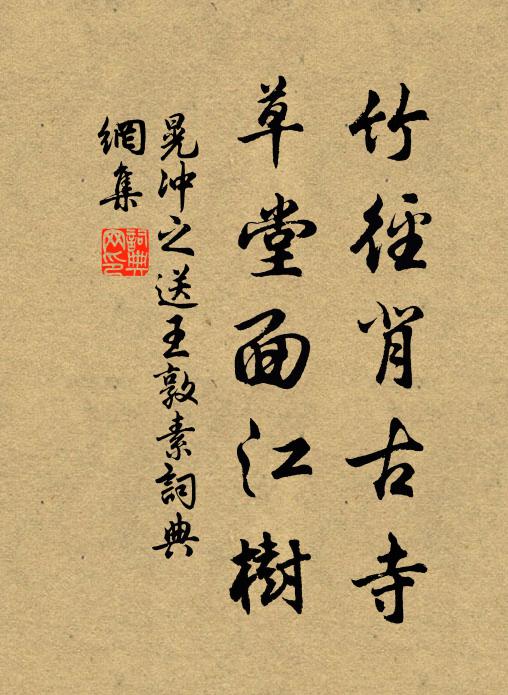 竹徑背古寺
草堂面江樹
晁沖之送王敦素詞典
網集
詞典
网印